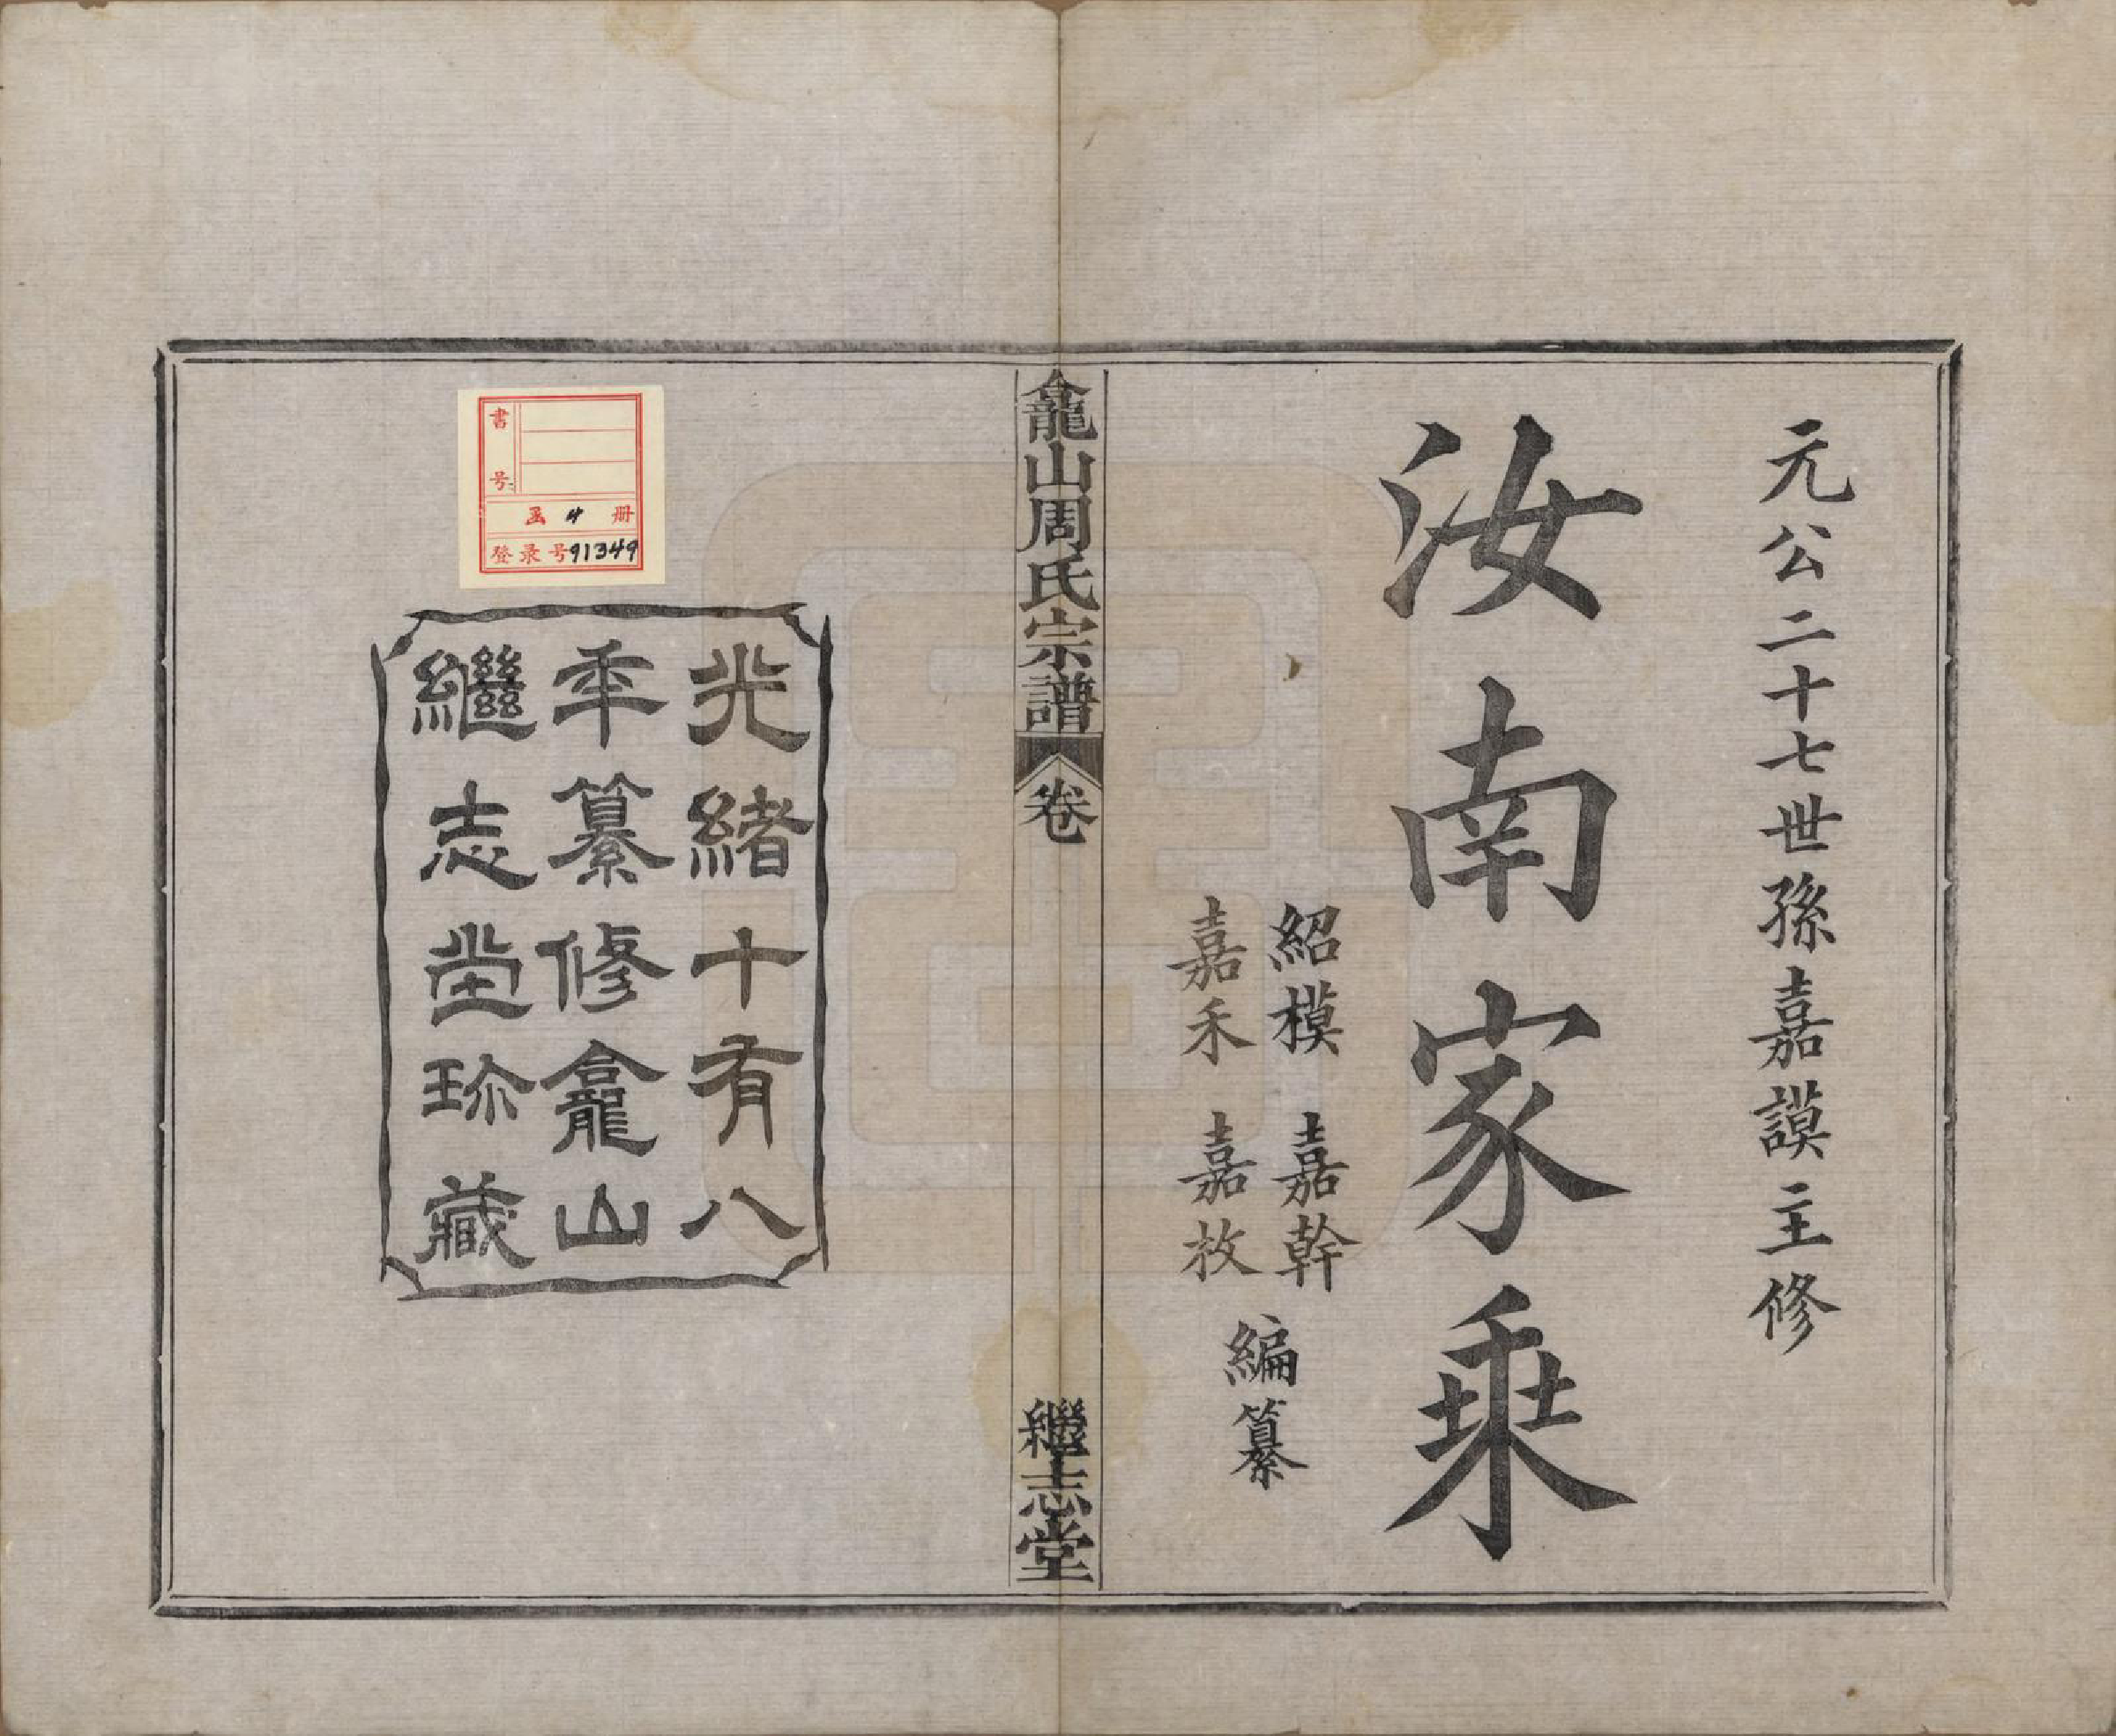 元公二十七世孫嘉謨主修
汝南家乘
紹模 嘉幹
嘉禾 嘉枚
編纂
龕山周氏宗譜 卷 繼志堂
光緒十有八
年纂修龕山
繼志堂珎藏
書号:
函 4 册
登录号91349